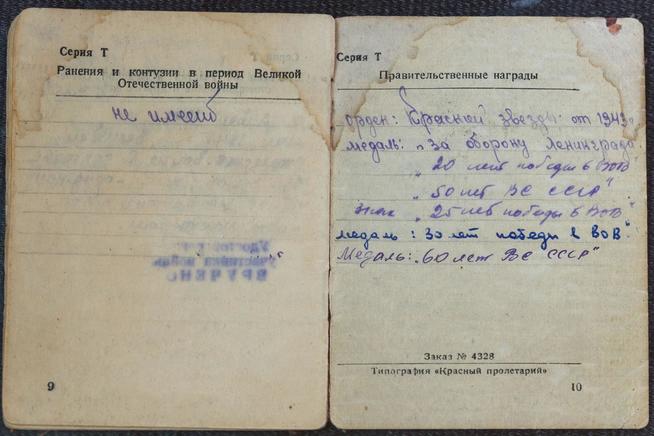 Серия Т
Ранения и контузии в период Великой
Отечественной войны
не имеет
Удостов
участника войны
ВРУЧЕНО
9
Серия Т
Правительственные награды
орден: Красной звезды от 1943г
медаль: „За оборону Ленинграда"
„20 лет победы в ВОВ
„50 лет ВС СССР"
Знак „25 лет победы в ВОВ"
Медаль: 30 лет победы в ВОВ"
Медаль: „60 лет ВС СССР"
Заказ № 4328
Типография «Красный пролетарий»
10